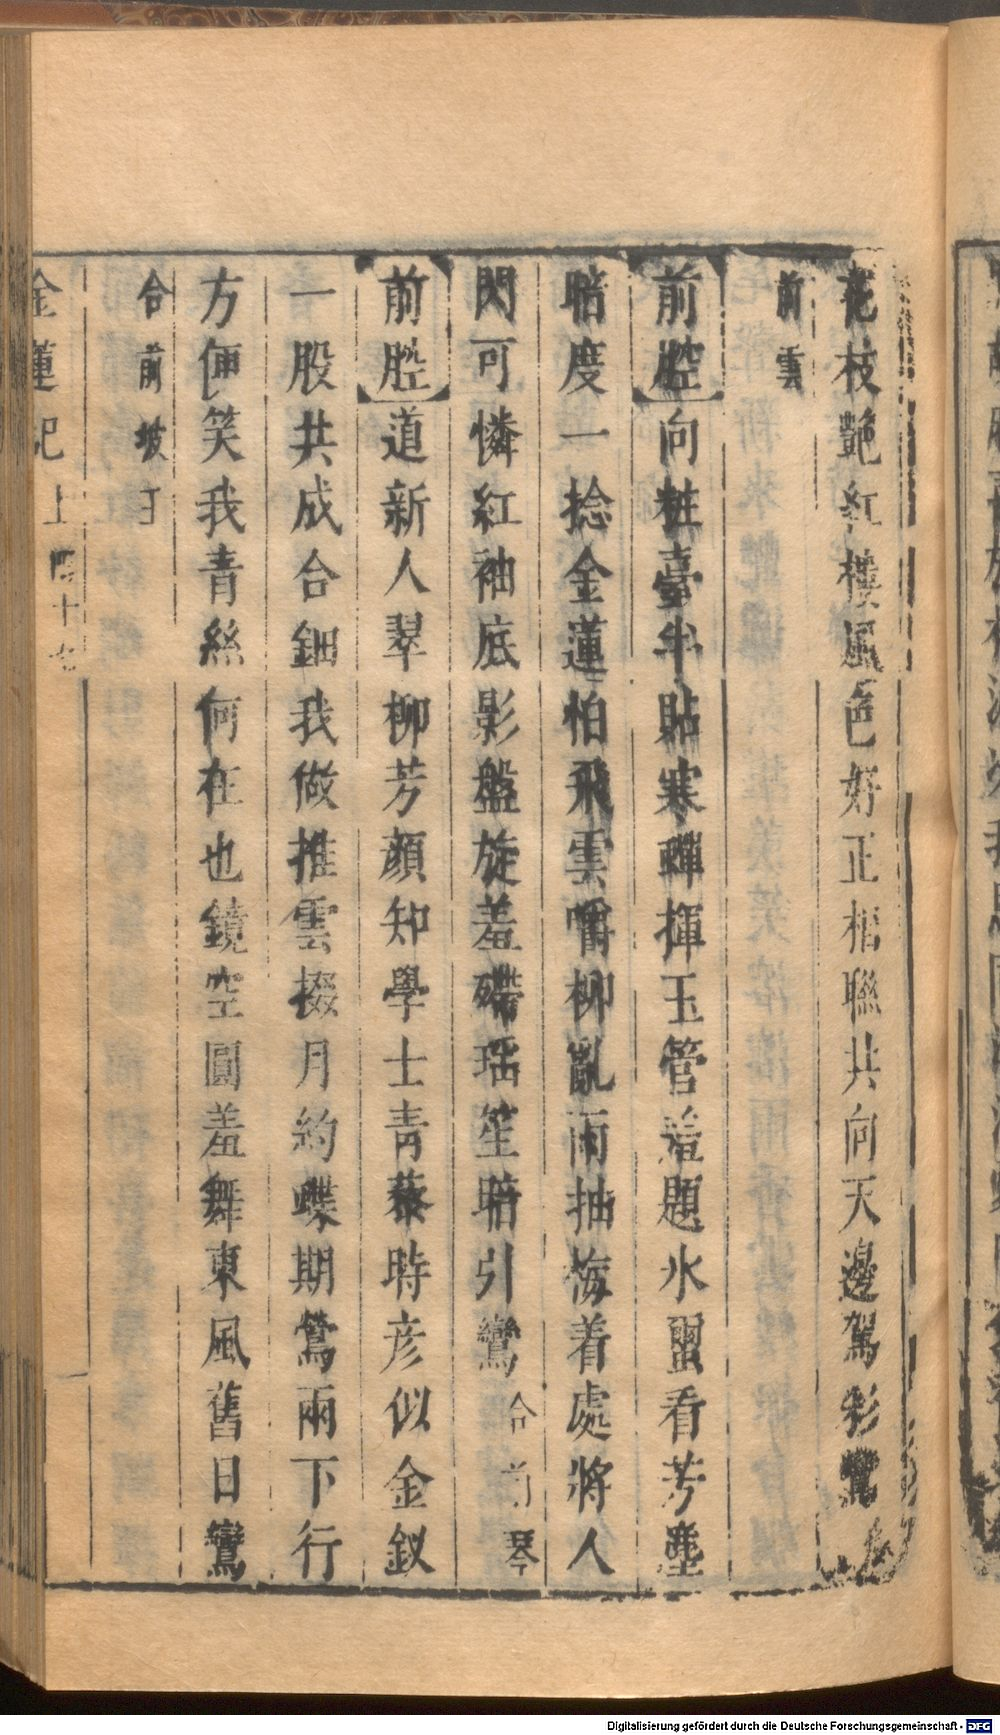 花枝艶紅樓風色好正相聯共向天邊駕彩鸞
前雲
前腔向粧臺半貼寒蟬揮玉管羞題氷蠒看芳塵
暗度一捻金蓮怕飛雲嚼柳亂雨抽梅着處將人
閃可憐紅袖底影盤旋羞瑤笙暗引鸞合前琴
前腔道新人翠柳芳顔知學士青藜時彦似金釵
一股共成合鈿我做推雲掇月約蝶期鶯兩下行
方便笑我青絲何在也鏡空圓羞舞東風舊日鸞
合前坡
金蓮記上十七
Digitalisierung gefördert durch die Deutsche Forschungsgemeinschaft - DFG